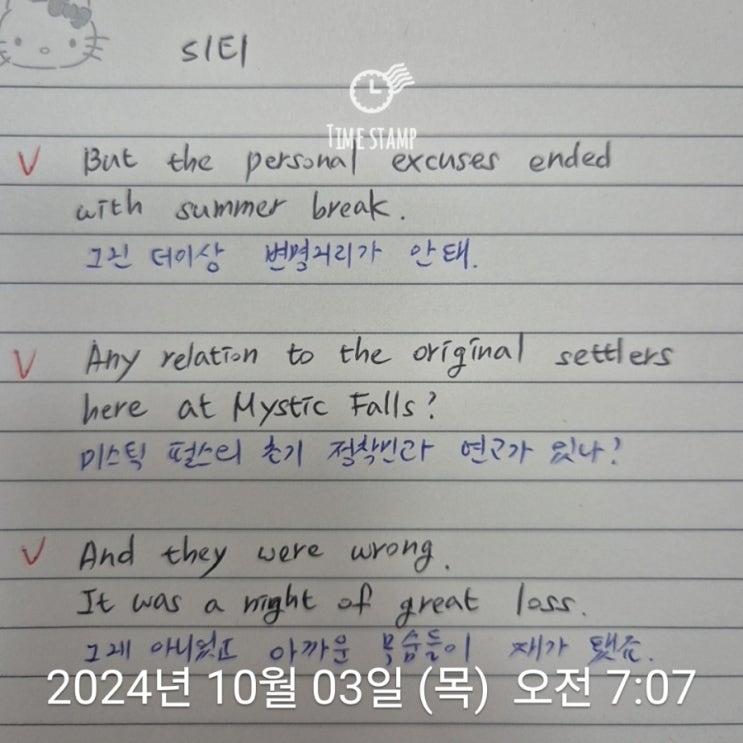 S1E1
TIMESTAMP
V But the personal excuses ended
with summer break.
그진 더이상 변명거리가 안 돼.
V Any relation to the original settlers
here at Mystic Falls?
미스틱 펄스의 초기 정착민과 연고가 있나?
V And they were wrong.
It was a night of great loss.
그게 아니었고 아까운 목숨들이 재가 됐죠.
2024년 10월 03일 (목) 오전 7:07